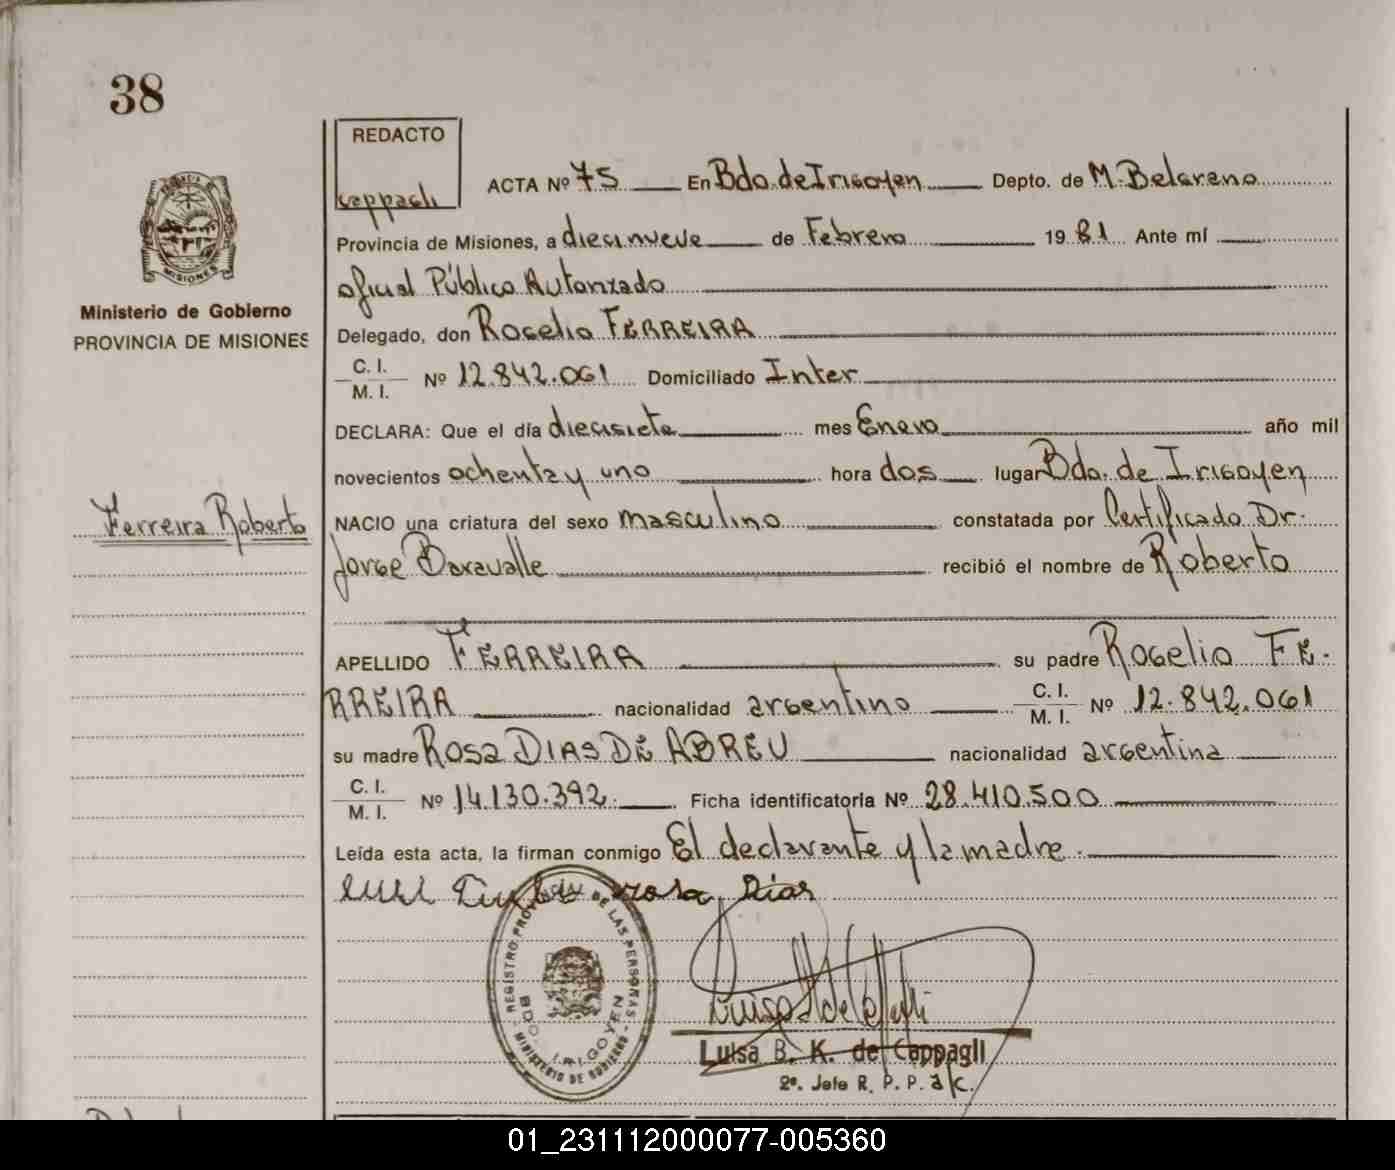 38
REDACTO
Cappagli
ACTA Nº 75 En Bdo. de Irigoyen Depto. de M. Belgrano
Provincia de Misiones, a diecinueve de Febrero 1981 Ante mí
oficial Público Autorizado
Delegado, don Rogelio FERREIRA
C. I.
M. I. Nº 12.842.061 Domiciliado Inter
DECLARA: Que el día diecisiete mes Enero año mil
novecientos ochenta y uno hora dos lugar Bdo. de Irigoyen
NACIO una criatura del sexo masculino constatada por Certificado Dr.
Jorge Baravalle recibió el nombre de Roberto
APELLIDO FERREIRA su padre Rogelio FE-
RREIRA nacionalidad argentino C. I. M. I. Nº 12.842.061
su madre Rosa DIAS DE ABREU nacionalidad argentina
C. I.
M. I. Nº 14.130.392. Ficha identificatoria Nº 28.410.500
Leída esta acta, la firman conmigo El declarante y la madre.
rosa Dias
MISIONES
Ministerio de Gobierno
PROVINCIA DE MISIONES
Ferreira Roberto
REGISTRO PROVINCIAL DE LAS PERSONAS
BDO. IRIGOYEN
MINISTERIO DE GOBIERNO
Luisa B. K. de Cappagli
2º. Jefe R. P. P. a/c.
01_231112000077-005360